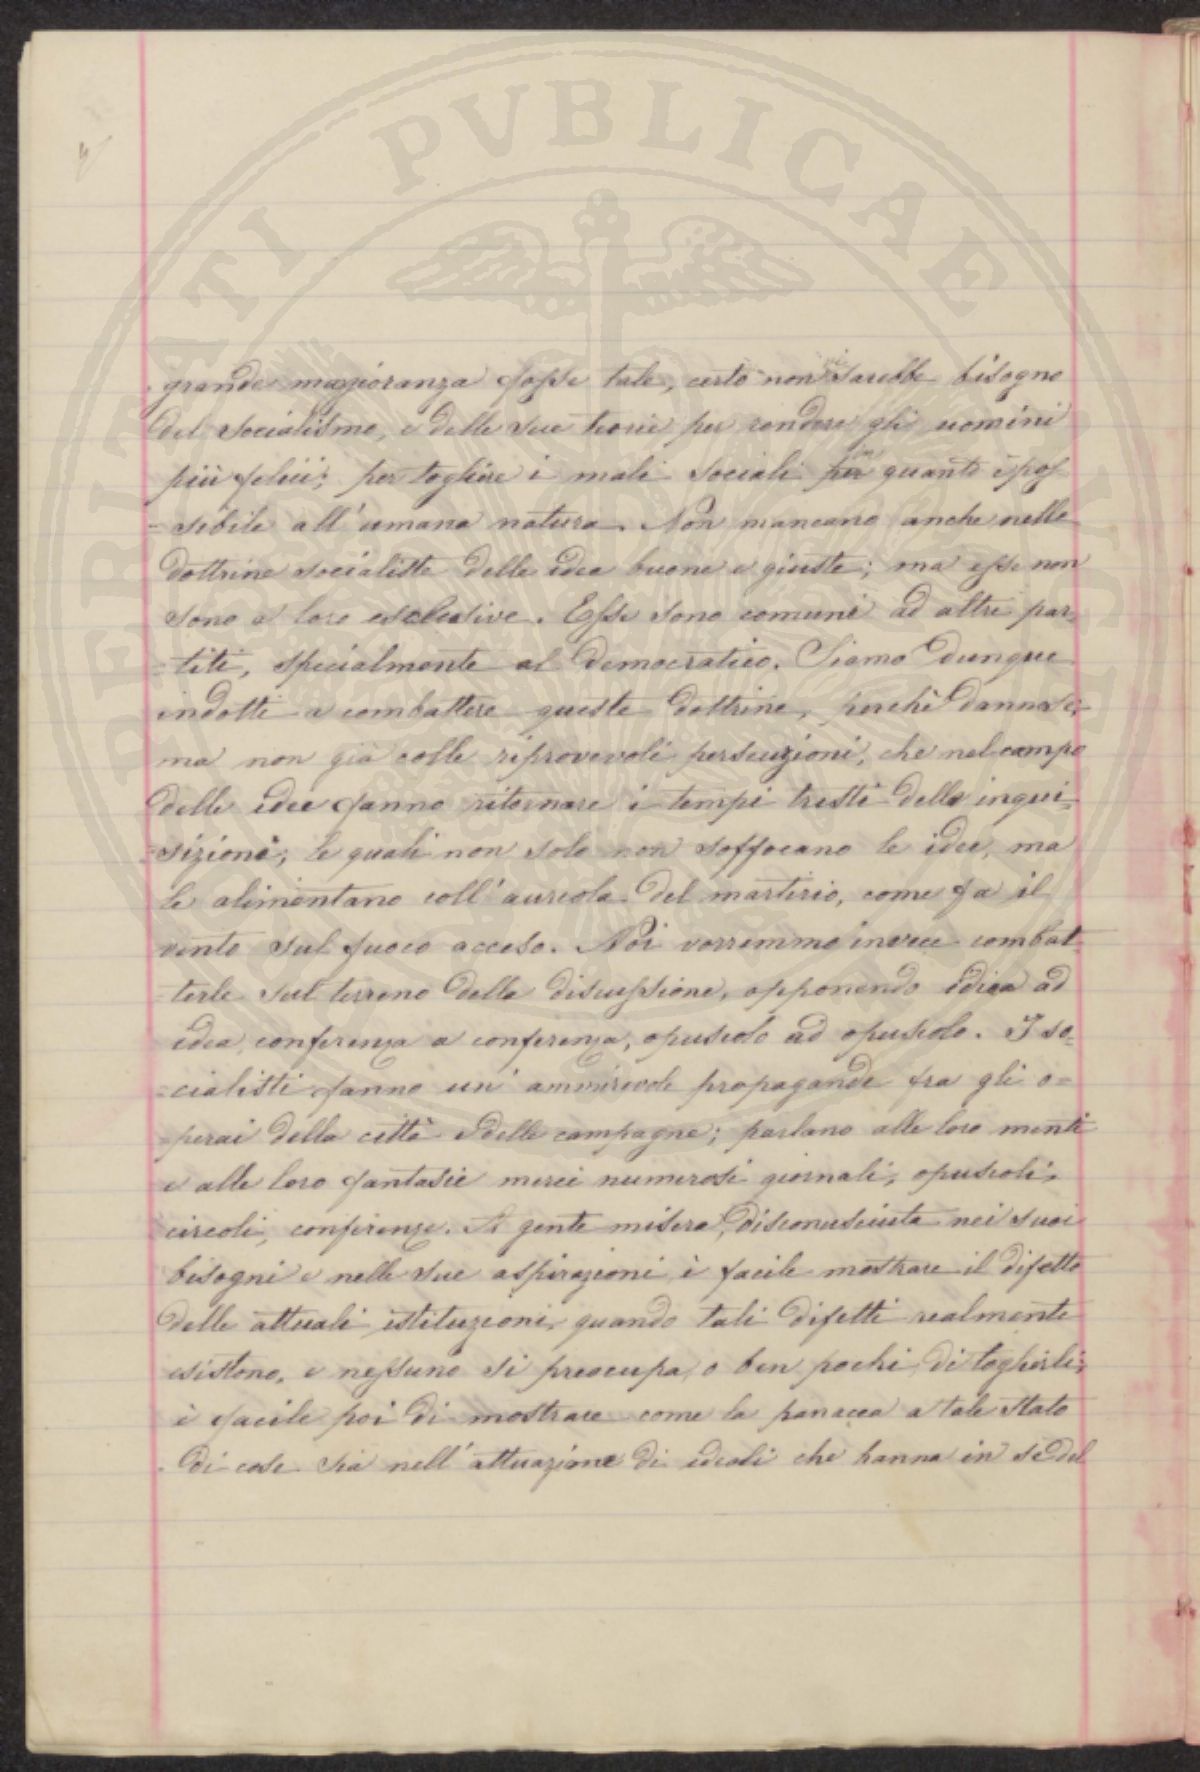 4
PERITATI PVBLICAE
grande maggioranza fosse tale, certo non vi sarebbe bisogno
del socialismo, e delle sue teorie per rendere gli uomini
più felici; per togliere i mali sociali per quanto è pos
=sibile all'umana natura. Non mancano anche nelle
dottrine socialiste delle idee buone e giuste; ma esse non
sono a loro esclusive. Esse sono comuni ad altri par=
=titi, specialmente al democratico. Siamo dunque
indotti a combattere queste dottrine, perchè dannose;
ma non già colle riprovevoli persecuzioni, che nel campo
delle idee fanno ritornare i tempi tristi della inqui=
=sizione, le quali non solo non soffocano le idee, ma
le alimentano coll'aureola del martirio, come fa il
vento sul fuoco acceso. Noi vorremmo invece combat
=terle sul terreno della discussione, opponendo idea ad
idea, conferenza a conferenza, opuscolo ad opuscolo. I so=
=cialisti fanno un'ammirevole propaganda fra gli o=
=perai della città e delle campagne; parlano alle loro menti
e alle loro fantasie mercè numerosi giornali, opuscoli,
circoli, conferenze. A gente misera, disconosciuta nei suoi
bisogni e nelle sue aspirazioni è facile mostrare il difetto
delle attuali istituzioni, quando tali difetti realmente
esistono, e nessuno si preoccupa, o ben pochi, di toglierli;
è facile poi di mostrare come la panacea a tale stato
di cose sia nell'attuazione di ideali che hanno in sè del